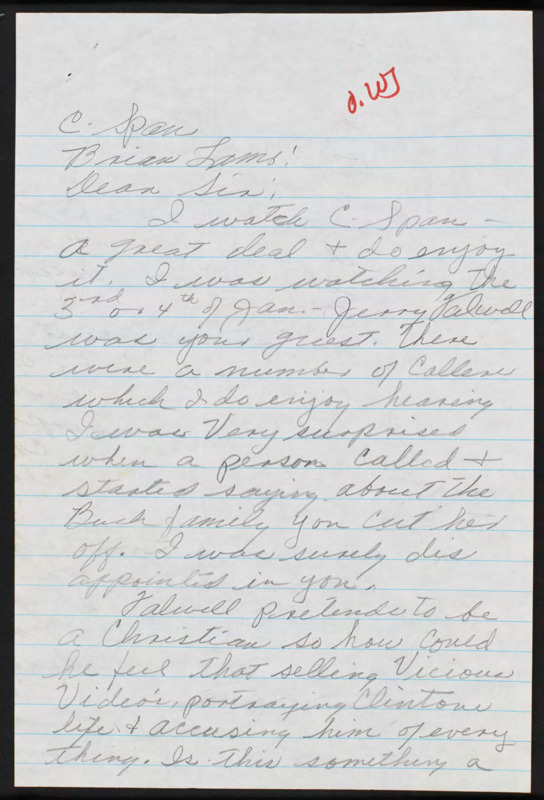 O.W.
C-Span
Brian Lamb!
Dear Sir,
I watch C-Span -
a great deal + do enjoy
it. I was watching the
3rd or 4th of Jan. - Jerry Falwell
was your guest. There
were a number of Callers
which I do enjoy hearing
I was Very surprised
when a person Called +
started saying about the
Bush family you Cut her
off. I was surely dis
appointed in you.
Falwell pretends to be
a Christian so how could
he feel that selling Vicious
Video's, portraying Clintons
life + accusing him of every
thing. Is this something a